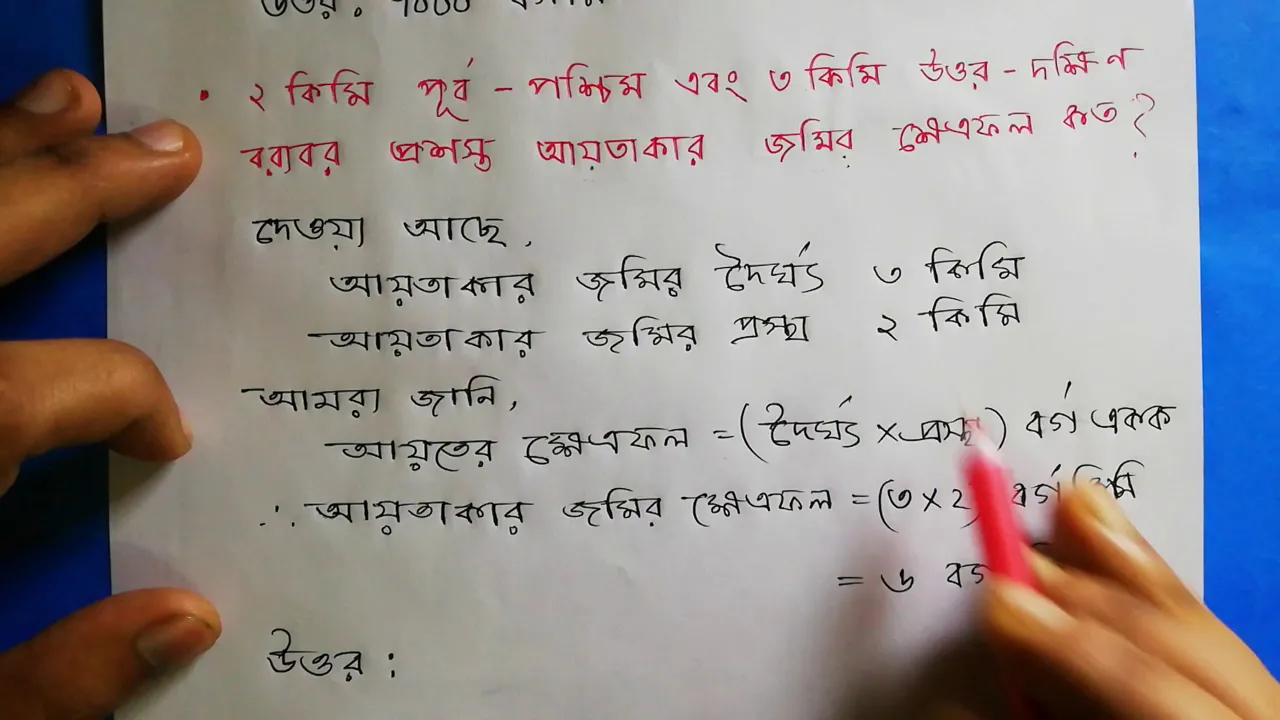 উত্তর : ৭০০০
• ২ কিমি পূর্ব - পশ্চিম এবং ৩ কিমি উত্তর - দক্ষিণ
বরাবর প্রশস্ত আয়তাকার জমির ক্ষেত্রফল কত ?
দেওয়া আছে,
আয়তাকার জমির দৈর্ঘ্য ৩ কিমি
আয়তাকার জমির প্রস্থ ২ কিমি
আমরা জানি,
আয়তের ক্ষেত্রফল = (দৈর্ঘ্য × প্রস্থ) বর্গ একক
∴ আয়তাকার জমির ক্ষেত্রফল = (৩ × ২) বর্গ কিমি
= ৬ বর্গ
উত্তর :